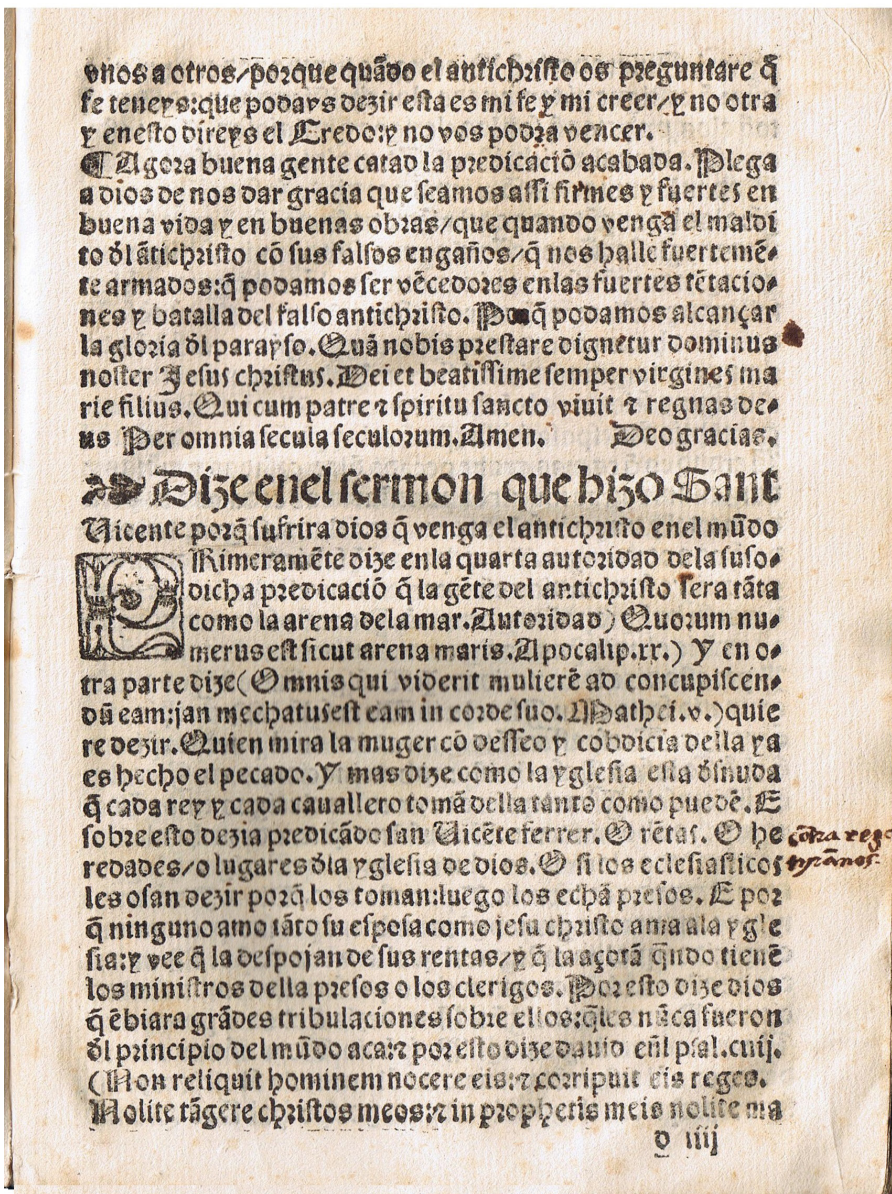 vnos a otros/porque quãdo el antichristo os preguntare q̃
fe teneys:que podays dezir esta es mi fe y mi creer/y no otra
y enesto direys el Credo:y no vos podra vencer.
¶Agora buena gente catad la predicaciõ acabada. Plega
a dios de nos dar gracia que seamos assi firmes y fuertes en
buena vida y en buenas obras/que quando venga el maldi
to ðl ãtichristo cõ sus falsos engaños/q̃ nos halle fuertemẽ-
te armados:q̃ podamos ser vẽcedores enlas fuertes tẽtacio-
nes y batalla del falso antichristo. Porq̃ podamos alcançar
la gloria ðl parayso. Quã nobis prestare dignetur dominus
noster Jesus christus. Dei et beatissime semper virgines ma
rie filius. Qui cum patre ⁊ spiritu sancto viuit ⁊ regnas de-
us Per omnia secula seculorum. Amen. Deo gracias.
Dize enel sermon que hizo Sant
Uicente porq̃ sufrira dios q̃ venga el antichristo enel mũdo
PRimeramẽte dize enla quarta autoridad dela suso-
dicha predicaciõ q̃ la gẽte del antichristo sera tãta
como la arena dela mar. Autoridad) Quorum nu-
merus est sicut arena maris. Apocalip.xx.) Y en o-
tra parte dize(Omnis qui viderit mulierẽ ad concupiscen-
dũ eam:jan mechatus est eam in corde suo. Mathei.v.)quie
re dezir. Quien mira la muger cõ desseo y cobdicia della ya
es hecho el pecado. Y mas dize como la yglesia esta ðsnuda
q̃ cada rey y cada cauallero tomã della tanto como puedẽ. E
sobre esto dezia predicãdo san Uicẽte ferrer. O rẽtas. O he
redades/o lugares ðla yglesia de dios. O si los eclesiasticos
les osan dezir porq̃ los toman:luego los echã presos. E por
q̃ ninguno amo tãto su esposa como jesu christo ama ala ygle
sia:y vee q̃ la despojan de sus rentas/y q̃ la açotã q̃ndo tienẽ
los ministros della presos o los clerigos. Por esto dize dios
q̃ ẽbiara grãdes tribulaciones sobre ellos:q̃les nũca fueron
ðl principio del mũdo aca:⁊ por esto dize dauid eñl psal.cuij.
(Non reliquit hominem nocere eis:⁊ corripuit eis reges.
Nolite tãgere christos meos:⁊ in prophetis meis nolite ma
d iiij
cõtra reg
tyrãnos.